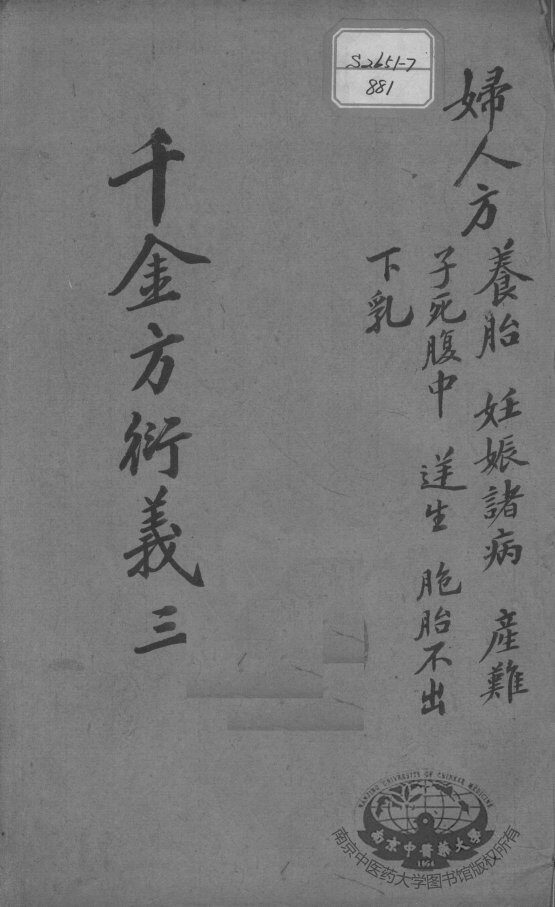 S2651-7
881
婦人方 養胎 妊娠諸病 產難
子死腹中 逆生 胞胎不出
下乳
千金方衍義三
NANJING UNIVERSITY OF CHINESE MEDICINE
南京中醫藥大學
1954
南京中医药大学图书馆版权所有